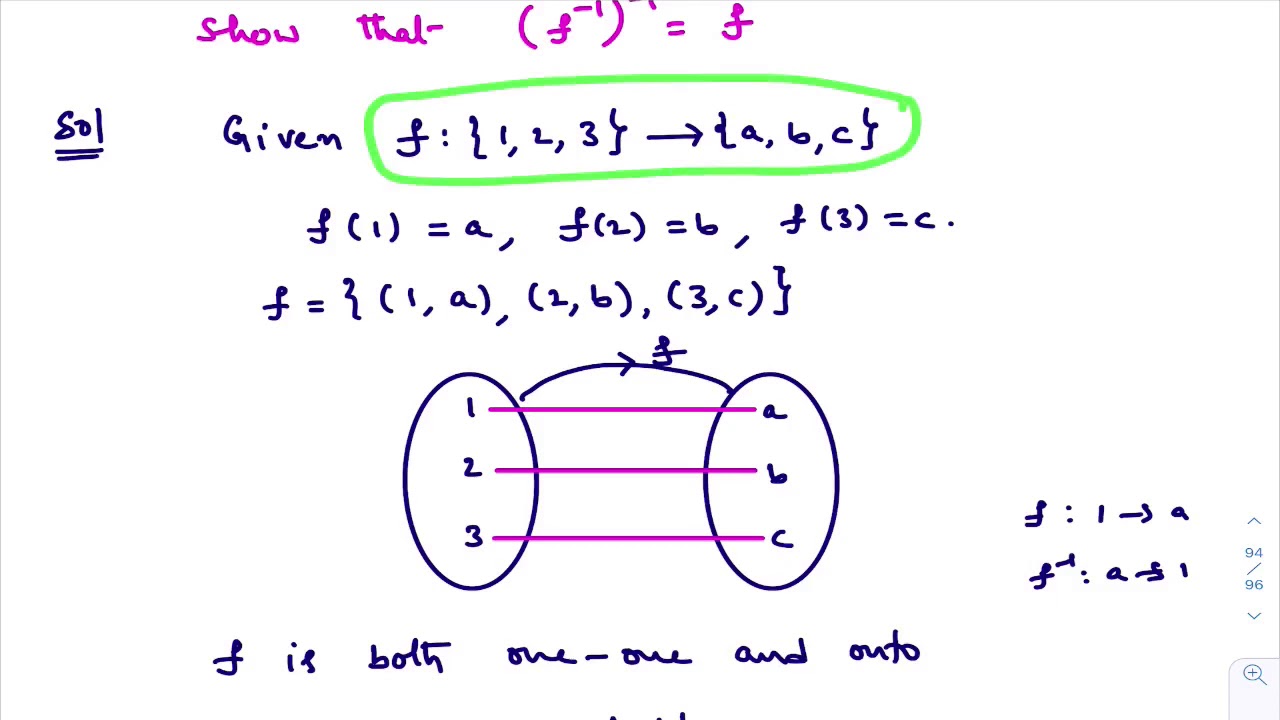 show that (f⁻¹)⁻¹ = f
Sol Given f : {1, 2, 3} → {a, b, c}
f(1) = a, f(2) = b, f(3) = c.
f = {(1, a), (2, b), (3, c)}
f
1 a
2 b
3 c
f : 1 → a
f⁻¹ : a → 1
94
/
96
f is both one-one and onto